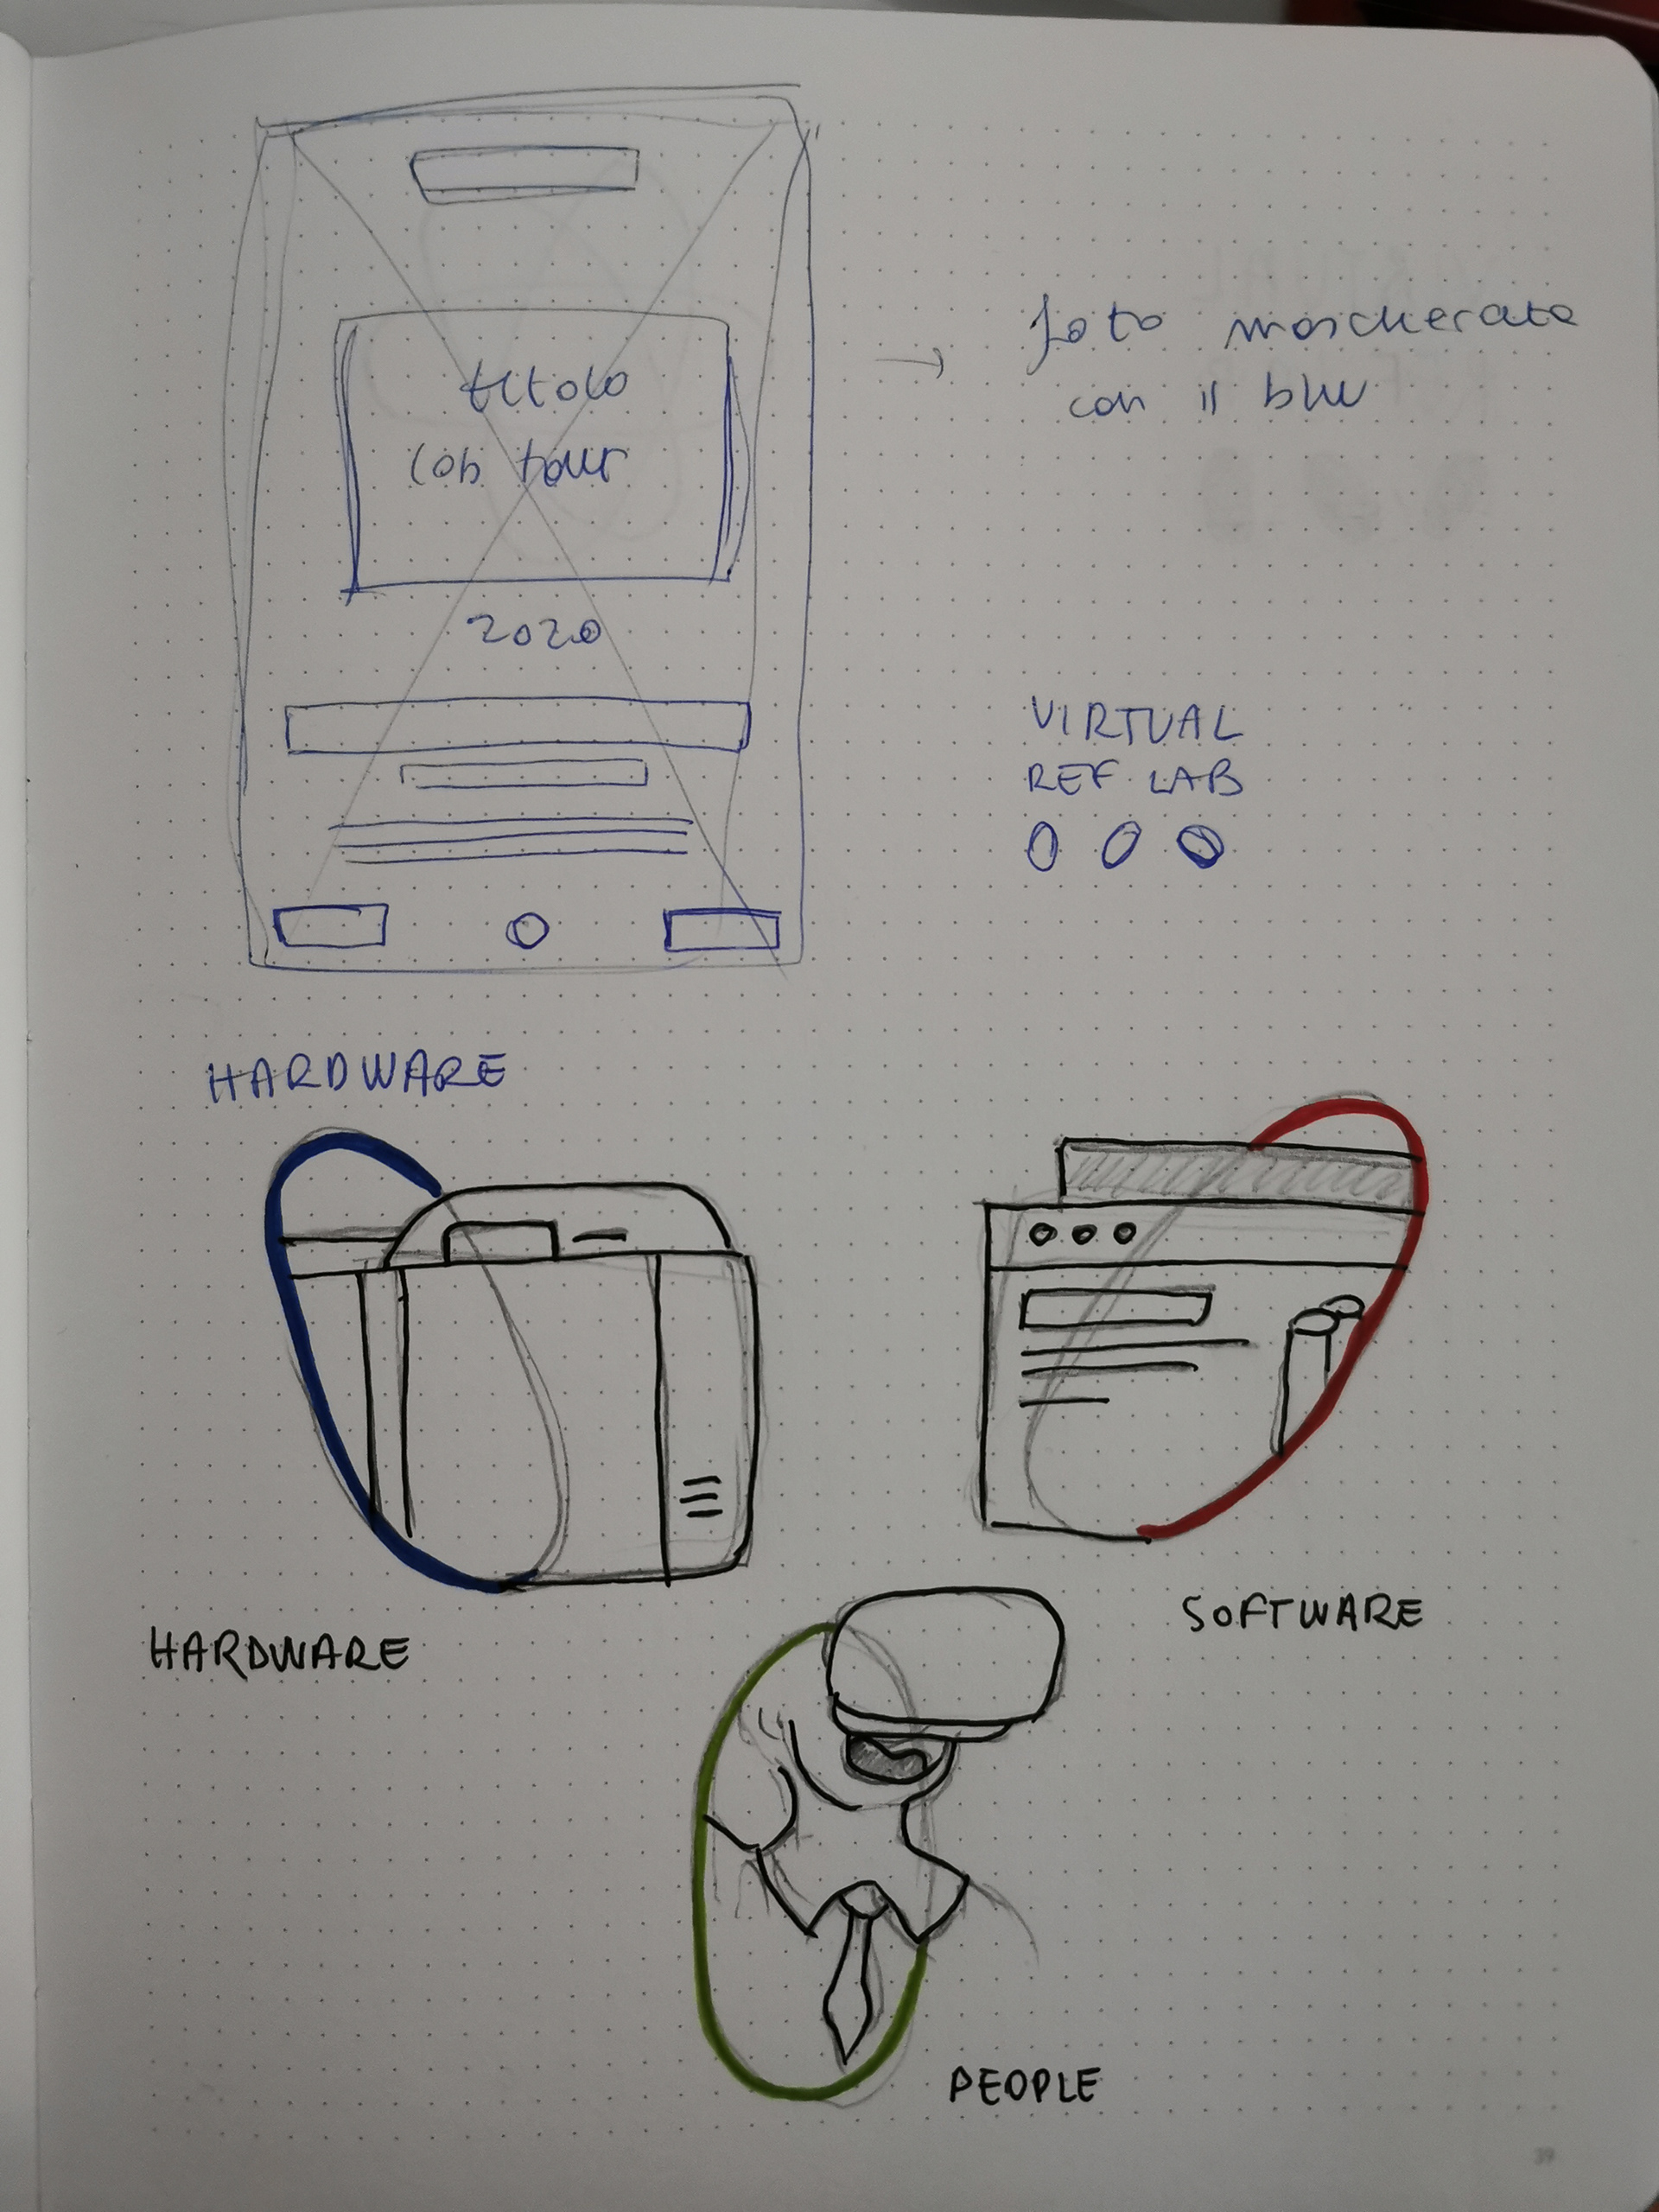 titolo
lab tour
2020
→ foto mascherata
con il blu
VIRTUAL
REF LAB
HARDWARE
HARDWARE
SOFTWARE
PEOPLE
39